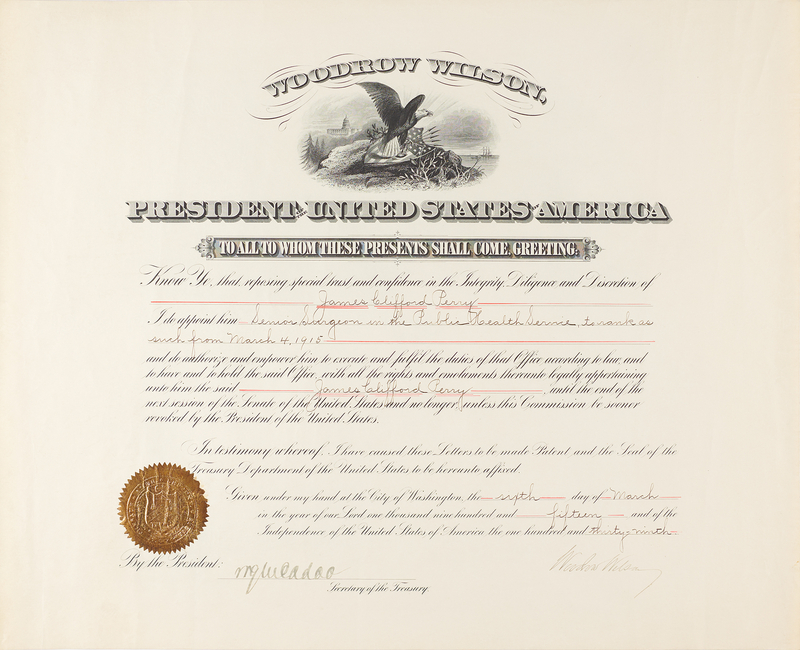 WOODROW WILSON,
PRESIDENT OF THE UNITED STATES OF AMERICA
TO ALL TO WHOM THESE PRESENTS SHALL COME, GREETING:
Know Ye, that, reposing special trust and confidence in the Integrity, Diligence and Discretion of
James Clifford Perry
I do appoint him Senior Surgeon in the Public Health Service, to rank as
such from March 4, 1915
and do authorize and empower him to execute and fulfil the duties of that Office according to law, and
to have and to hold the said Office, with all the rights and emoluments thereunto legally appertaining
unto him the said James Clifford Perry, until the end of the
next session of the Senate of the United States and no longer, unless this Commission be sooner
revoked by the President of the United States.
In testimony whereof, I have caused these Letters to be made Patent and the Seal of the
Treasury Department of the United States to be hereunto affixed.
Given under my hand at the City of Washington, the sixth day of March
in the year of our Lord one thousand nine hundred and fifteen and of the
Independence of the United States of America the one hundred and thirty-ninth
By the President: Woodrow Wilson
W G McAdoo
Secretary of the Treasury.